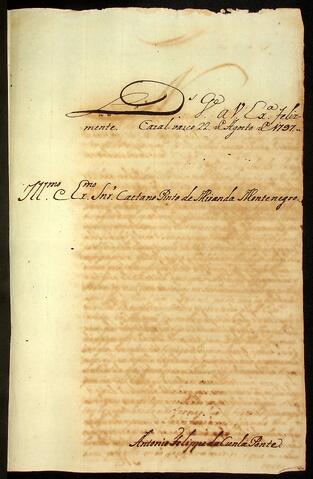 D.s G.e a V. Ex.a feliz
mente. Cazal vasco 22 de Agosto de 1797.
Ill.mo e Ex.mo Snr. Caetano Pinto de Miranda Montenegro.
Antonio Felippe da Cunha Ponte